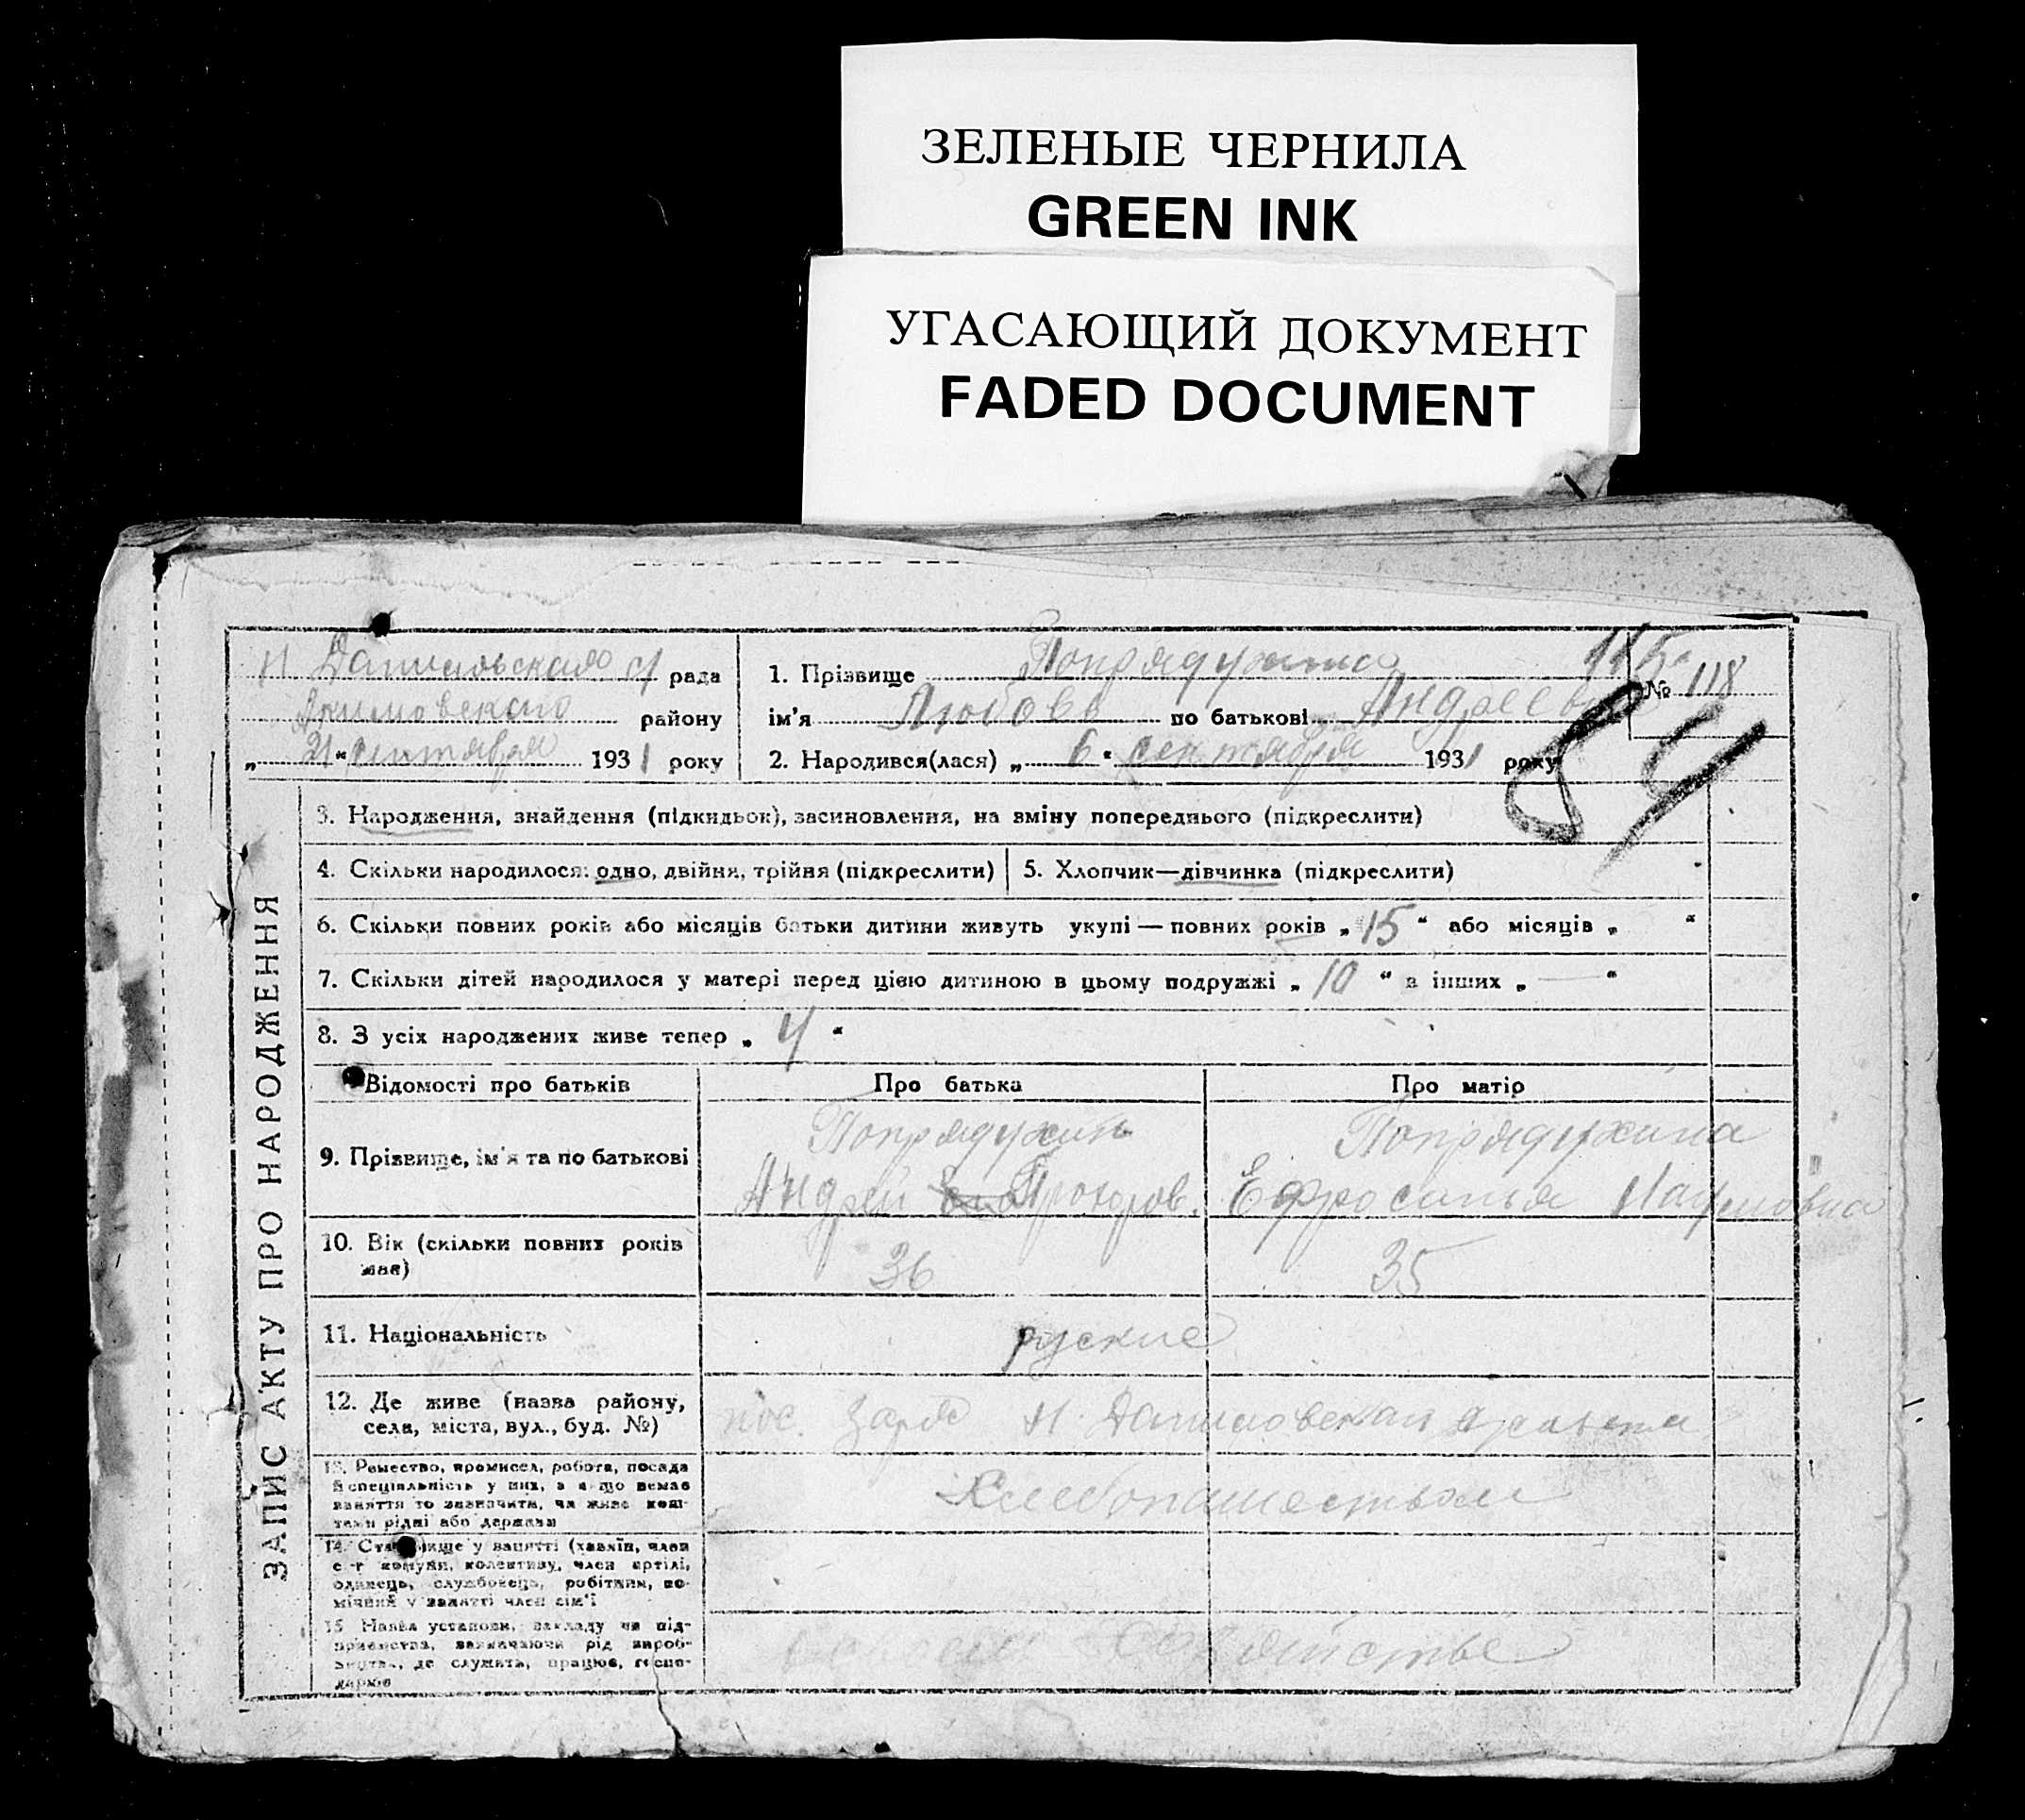 ЗЕЛЕНЫЕ ЧЕРНИЛА
GREEN INK
УГАСАЮЩИЙ ДОКУМЕНТ
FADED DOCUMENT
ЗАПИС АКТУ ПРО НАРОДЖЕННЯ
Н. Даниловская с/ рада
району
„21“ сентября 1931 року
1. Прізвище Попрядухина
№ 118
ім'я Любовь по батькові Андреевна
2. Народився(лася) „6“ сентября 1931 року
84
3. Народження, знайдення (підкидьок), засиновлення, на вміну попереднього (підкреслити)
4. Скільки народилося: одно, двійня, трійня (підкреслити)
5. Хлопчик—дівчинка (підкреслити)
6. Скільки повних років або місяців батьки дитини живуть укупі — повних років „15“ або місяців „ “
7. Скільки дітей народилося у матері перед цією дитиною в цьому подружжі „10“ в інших „—“
8. З усіх народжених живе тепер „4“
Відомості про батьків
Про батька
Про матір
9. Прізвище, ім'я та по батькові
Попрядухин
Андрей
Попрядухина
Ефросинья Наумовна
10. Вік (скільки повних років
має)
36
35
11. Національність
руские
12. Де живе (назва району,
села, міста, вул., буд. №)
пос. Заря Н. Даниловская
13. Ремество, промисел, робота, посада
й спеціяльність у них, а якщо немає
заняття то зазначити, чи живе кош-
тами рідні або держави
Хлебопашеством
14. Становище у занятті (хазяїн, член
с-г комуни, колективу, член артілі,
одинець, службовець, робітник, по-
мічний у занятті член сім'ї
15. Назва установи, закладу чи під-
приємства, зазначаючи рід вироб-
ництва, де служить, працює, госпо-
дарює
хозяйстве